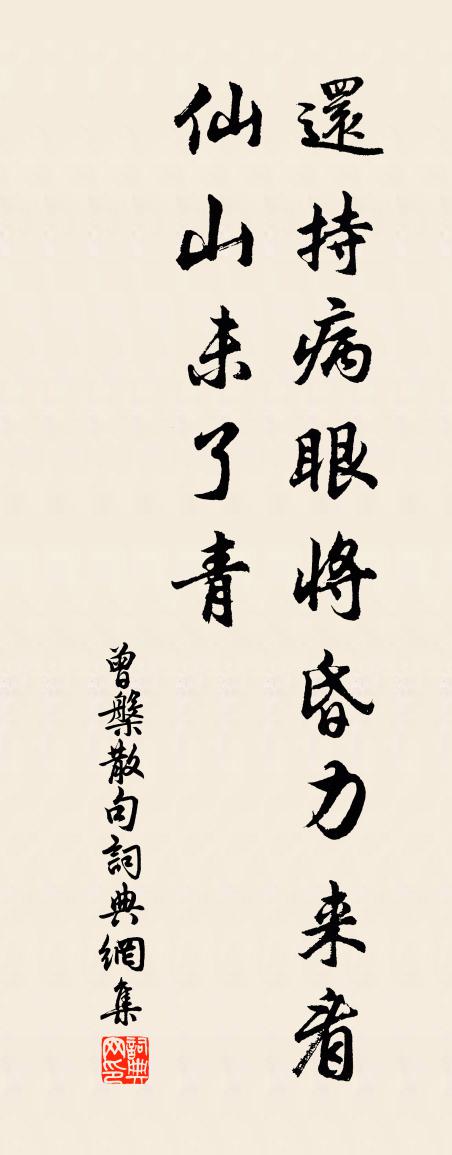 還持病眼將昏力来看
仙山未了青
曾槃散句詞典網集
詞典网印